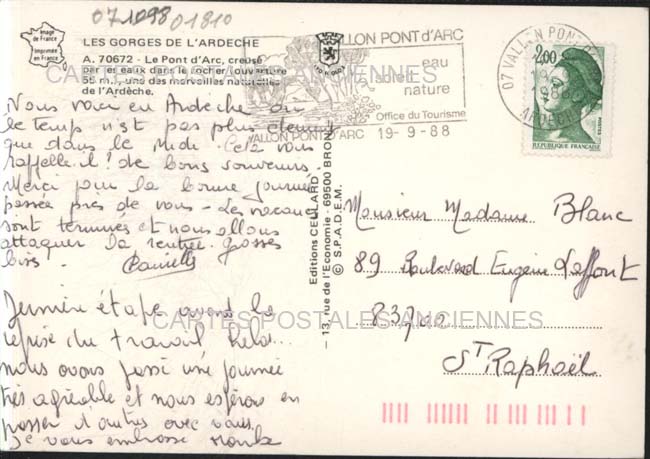 071098 01810
Image
de France
Imprimée
en France
LES GORGES DE L'ARDECHE
A. 70672 - Le Pont d'Arc, creusé
par les eaux dans le rocher, ouverture
55 m., une des merveilles naturelles
de l'Ardèche.
VALLON PONT d'ARC
eau
soleil
nature
Office du Tourisme
VALLON PONT D'ARC 19-9-88
07 VALLON PONT D'ARC
ARDECHE
2,00
POSTES
REPUBLIQUE FRANÇAISE
Nous voici en Ardèche où
le temps n'est pas plus clément
que dans le Midi. Cela vous
rappelle il! de bons souvenirs.
Merci pour la bonne journée
passée près de vous - Les vacances
sont terminées et nous allons
attaquer la rentrée. Grosses
bises. Danielle
Dernière étape avant la
reprise du travail hélas...
nous avons passé une journée
très agréable et nous espérons en
passer d'autres avec vous.
Je vous embrasse
Editions CELLARD
- 13, rue de l'Economie - 69500 BRON
© S.P.A.D.E.M.
Monsieur Madame Blanc
89 Boulevard Eugène Laffont
83700
St Raphaël
CARTES POSTALES ANCIENNES
CARTES POSTALES ANCIENNES